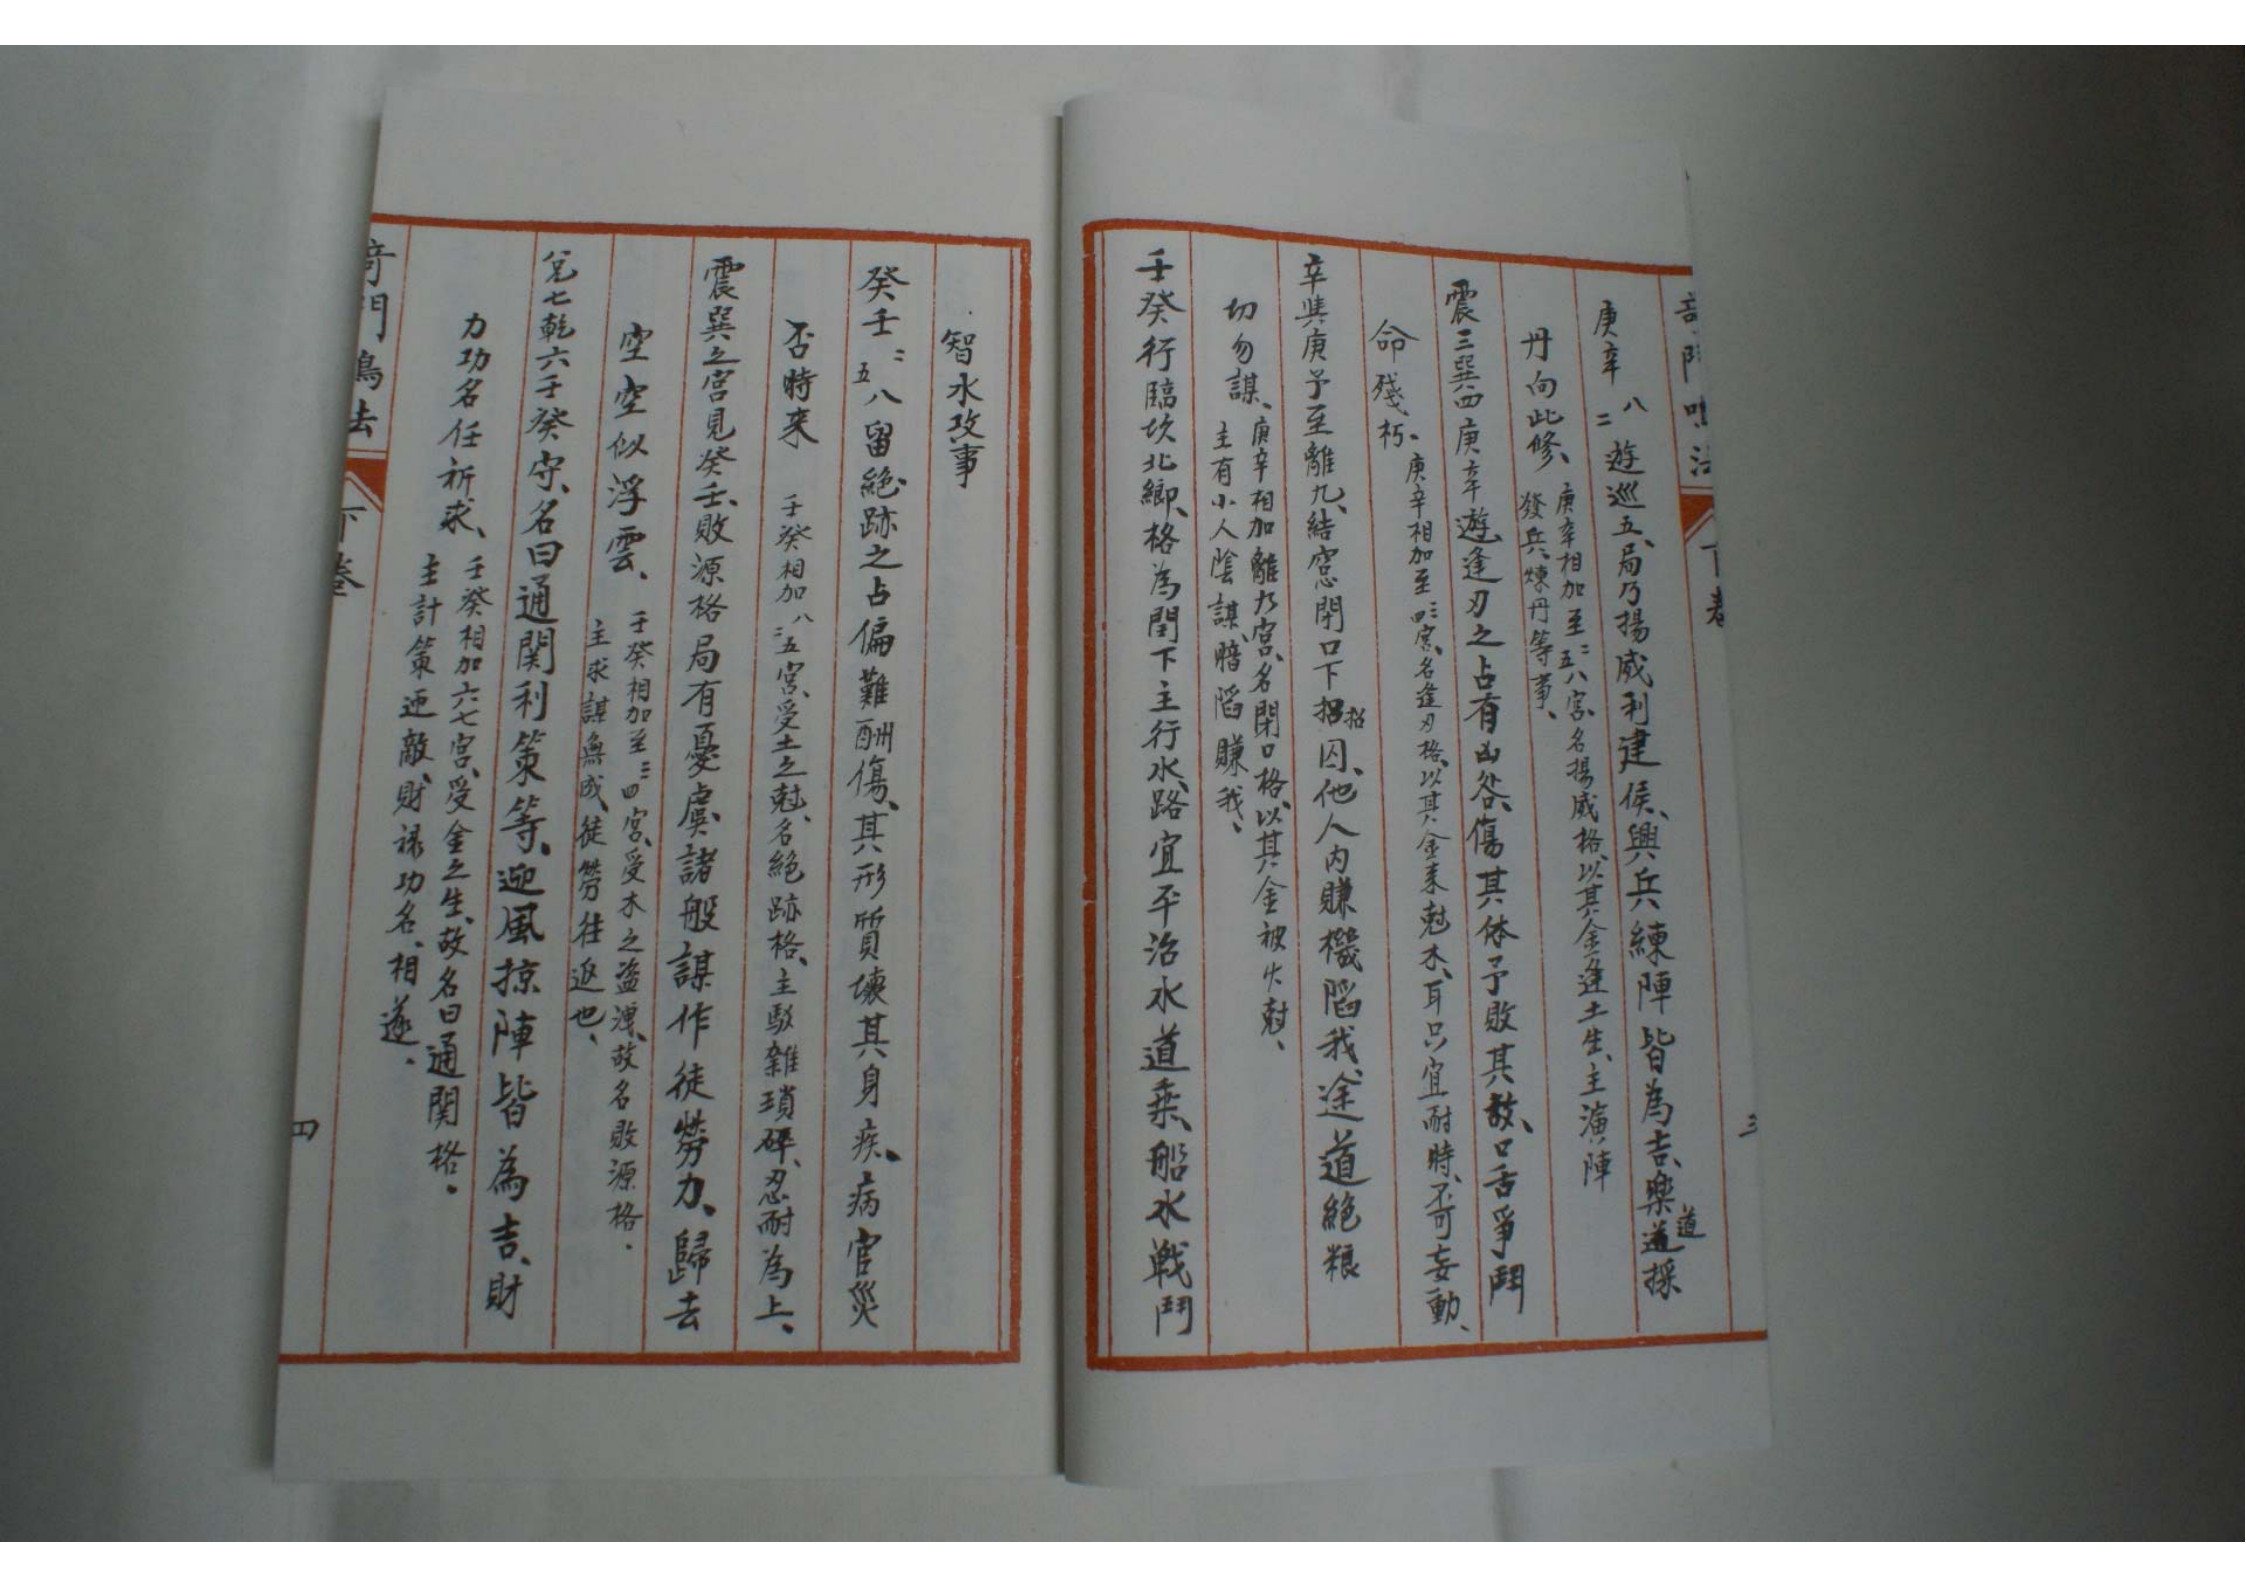 下卷
三
庚辛二八遊巡五、局乃揚威利建侯、興兵練陣皆為吉、樂道採
道
丹向此修、
庚辛相加至二五八宮、名揚威格、以其金逢土生、主演陣
發兵、煉丹等事、
震三巽四庚辛遊、逢刃之占有凶咎、傷其体予敗其故、口舌爭鬪
命殘朽。
庚辛相加至三四宮、名逢刃格、以其金来尅木、耳只宜耐時、不可妄動、
辛與庚予至離九、結窓閉口下招囚、他人内賺機陷我、途道絕粮
招
切勿謀、
庚辛相加離九宮、名閉口格、以其金被火尅、
主有小人陰謀、暗陷賺我、
壬癸行臨坎北鄉、格為閏下主行水、路宜平治水道乘、船水戦鬪
智水攻事
癸壬二五八留絕跡之占偏難酬傷、其形質壊其身疾、病官災
否時来
壬癸相加二五八宮、受土之尅、名絕跡格、主駁雜瑣碎、忍耐為上、
震巽之宮見癸壬、敗源格局有憂虞、諸般謀作徒勞力、歸去
空空似浮雲、
壬癸相加至三四宮、受木之盗洩、故名敗源格。
主求謀無成、徒勞往返也、
兌七乾六壬癸守、名曰通関利策等、迎風掠陣皆為吉、財
力功名任祈求、
壬癸相加六七宮、受金之生、故名曰通関格。
主計策迎敵、財禄功名、相遂。
奇門鳴法
下卷
四